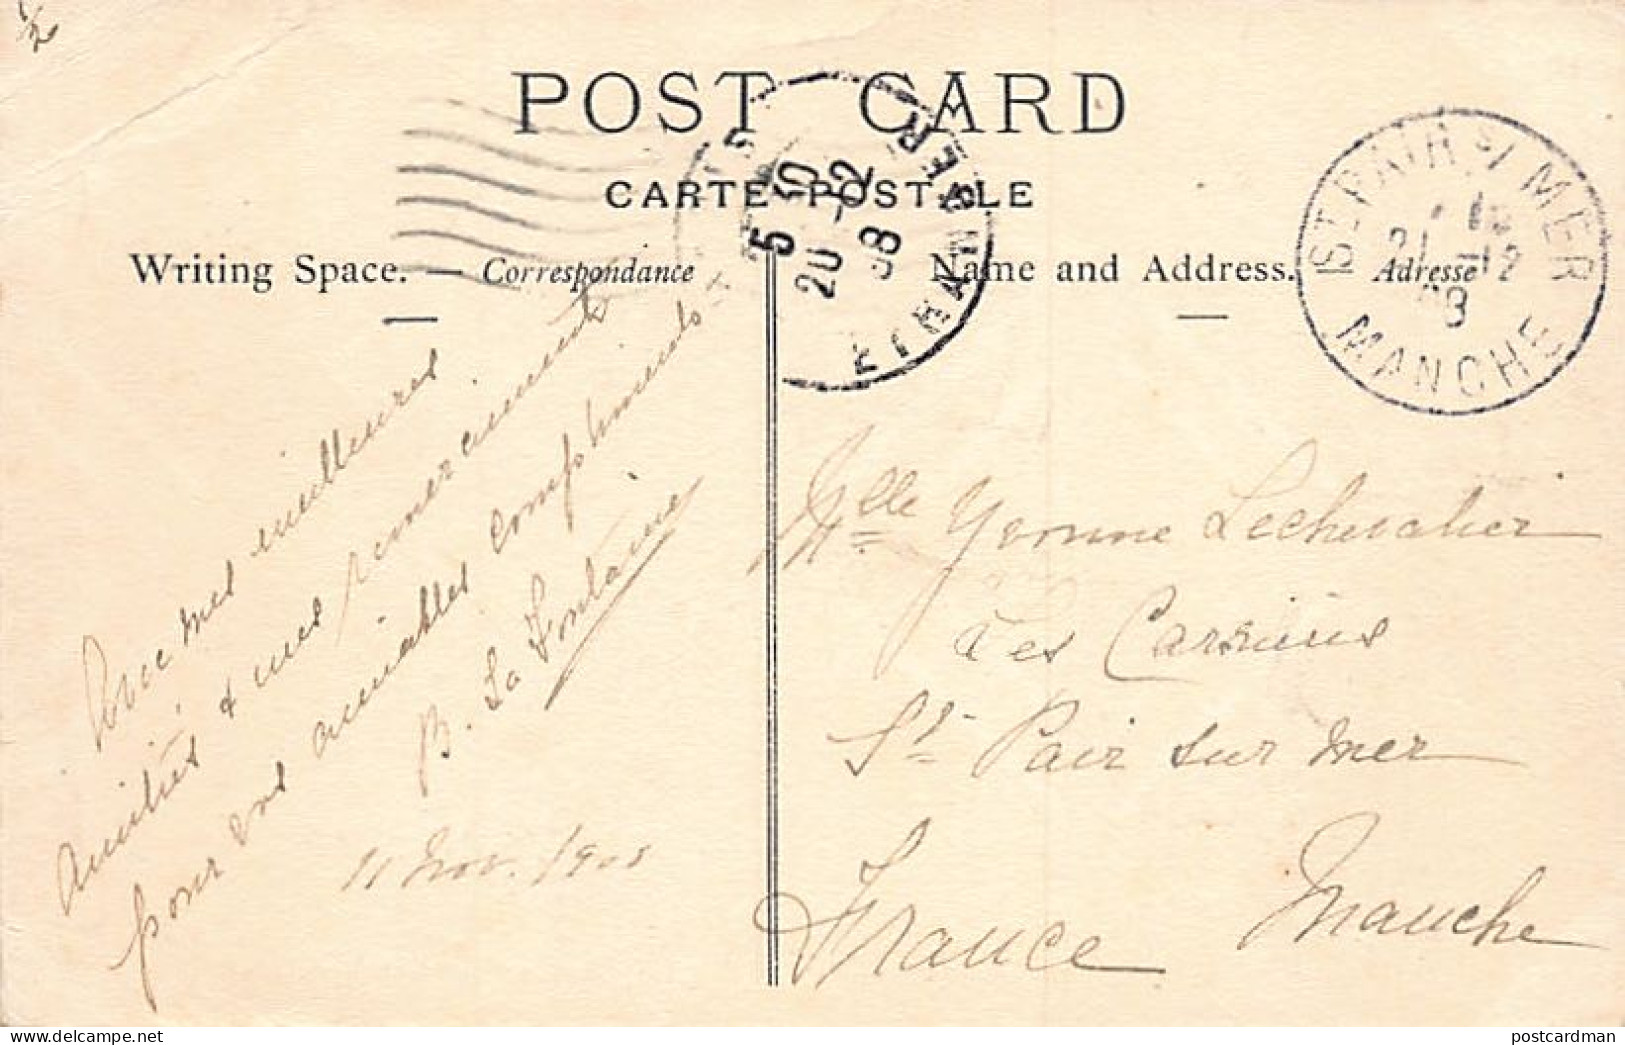 1/2
POST CARD
CARTE POSTALE
Writing Space. — Correspondance
Name and Address. Adresse
5 50
20 -12
08
ETRANGER
ST PAIR S/ MER
21 -12
08
MANCHE
Avec mes meilleures
amitiés & mes remerciements
pour vos aimables compliments
B. La Fontaine
11 Nov. 1908
Mlle Yvonne Lechevalier
St Pair sur mer
Manche
France
www.delcampe.net
postcardman